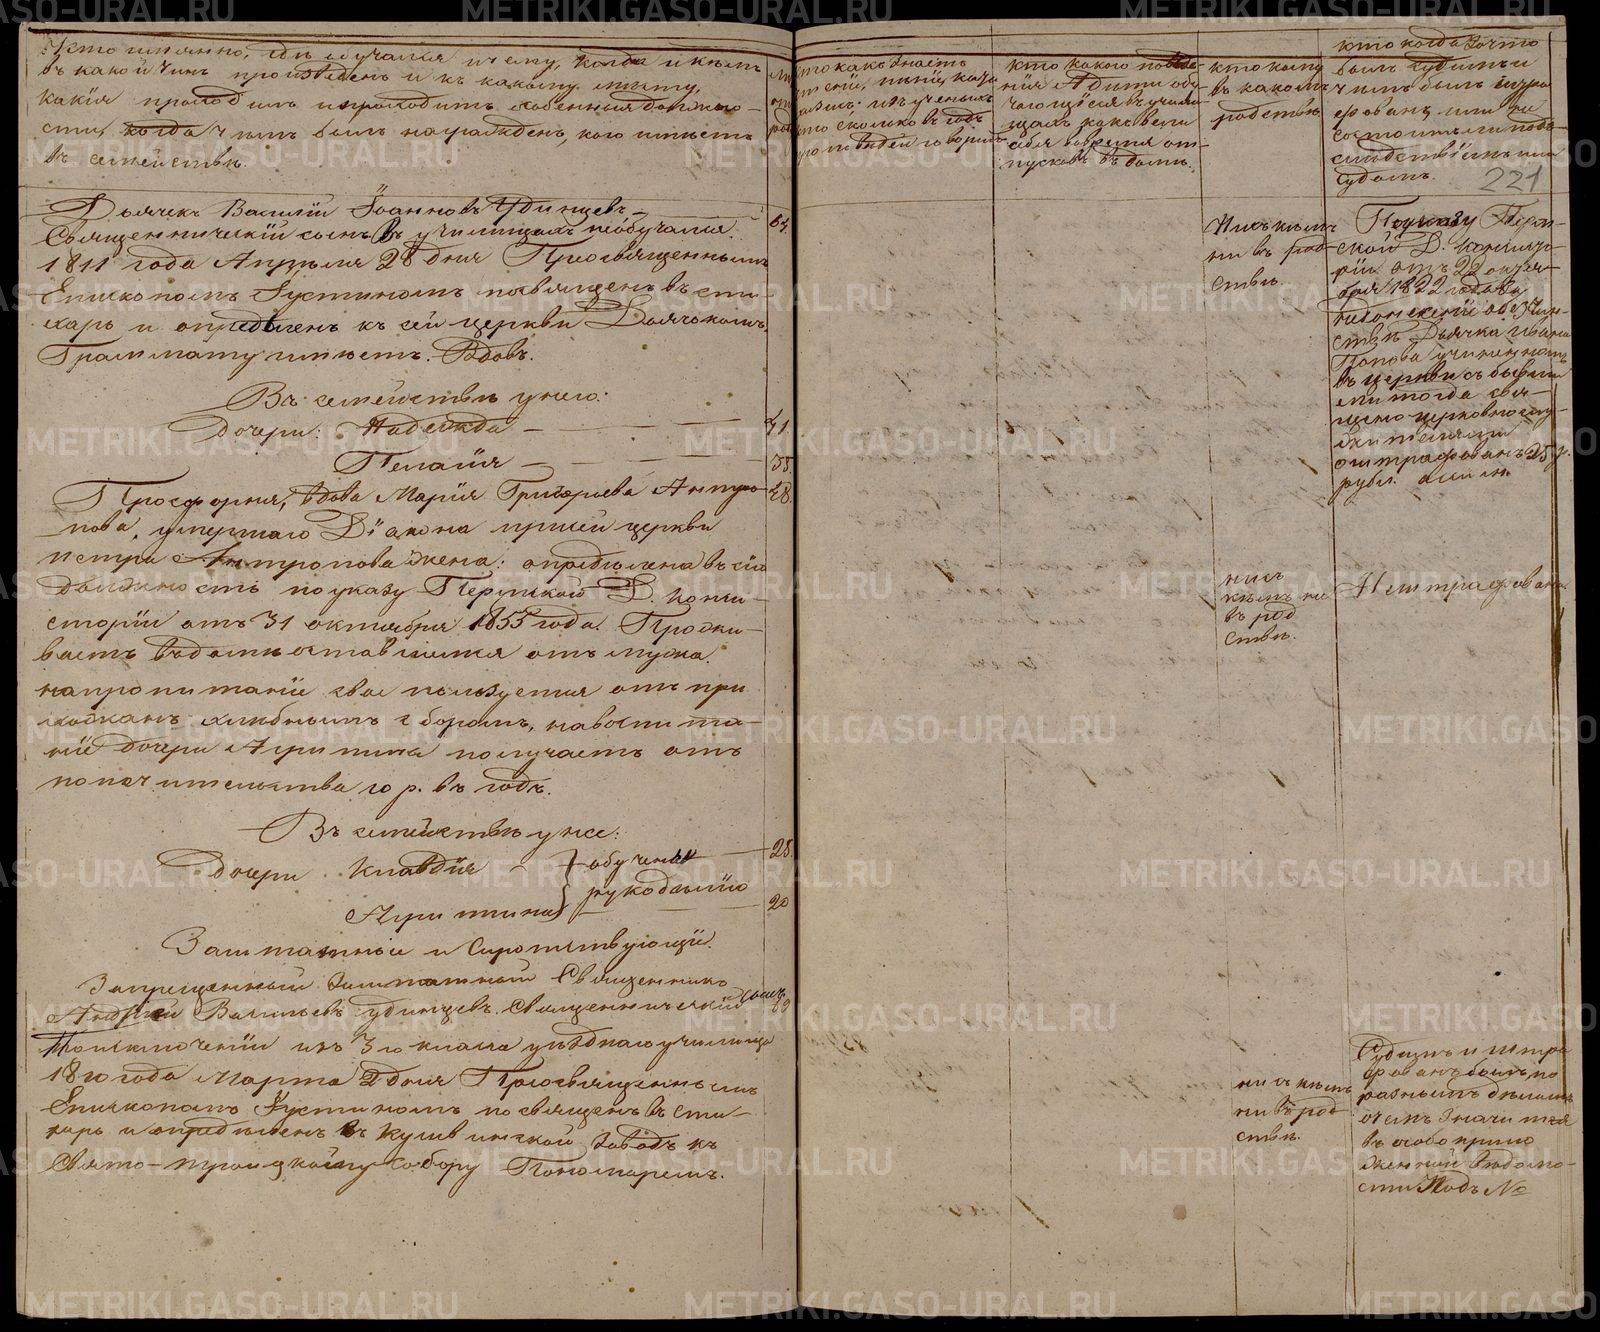 Кто имянно, гдѣ обучался и чему, когда и кѣмъ
въ какой чинъ произведенъ и къ какому мѣсту,
какія проходилъ и проходитъ особенныя должно-
сти, когда чѣмъ былъ награжденъ, кого имѣетъ
въ семействѣ.
Дьячекъ Василій Іоанновъ Удинцевъ
Священническій сынъ. Въ училищахъ необучался.
1811 года Апрѣля 28 дня Преосвященнымъ
Епископомъ Іустиномъ посвященъ въ сти-
харь и опредѣленъ къ сей церкви Дьячкомъ.
Граммату имѣетъ. Вдовъ.
Въ семействѣ у него:
Дочери: Надежда 41.
Пелагія 35.
Просфорня, вдова Марія Григорьева Антро- 48.
пова, умершаго Діакона при сей церкви
Петра Антропова жена; опредѣлена въ сію
должность по указу Пермской Д. Конси-
сторіи отъ 31 октября 1855 года. Прожи-
ваетъ въ домѣ оставшемся отъ мужа.
на пропитаніе свое пользуется отъ при
хожанъ хлѣбнымъ сборомъ, на воспита-
ніе дочери Агрипина получаетъ отъ
попечительства 10 р. въ годъ.
Въ семействѣ у нее:
Дочери Клавдія обучены 28.
рукодѣлію
Агрипина 20
Заштатные и Сиротствующіе.
Запрещенный Заштатный Священникъ
Андрей Васильевъ Удинцевъ. Священническій сынъ 69
По исключеніи изъ 3го класса уѣзднаго училища
1810 года Марта 2 дня Преосвященнымъ
Епископомъ Іустиномъ посвященъ въ сти-
харь и опредѣленъ въ Кушвинской Заводъ къ
Свято-троицкому собору Пономаремъ.
кто какъ знаетъ
кто какого поведе-
нія. А дѣти обу-
чающіеся въ учили-
щахъ какъ вели
себя во время от-
пусковъ въ домы.
кто кому
въ какомъ
родствѣ
кто когда За что
былъ судимъ и
чѣмъ былъ штра
фованъ, или не
состоитъ ли подъ
слѣдствіемъ или
судомъ.
221
84.
Ни съ кѣмъ
ни въ род-
ствѣ.
По указу Перм-
ской Д. Консисто-
ріи отъ 22 октя-
бря 1822 года за
недонесеніе о безчин-
ствѣ Дьячка Ивана
Попова учиненномъ
въ церкви съ бывши
ми тогда свя-
щенно церковнослу-
жителями
оштрафованъ 25 р.
рубл.
ни съ
кѣмъ ни
въ род
ствѣ.
Не штрафована
ни съ кѣмъ
ни въ род
ствѣ.
Судимъ и штра
фованъ былъ по
разнымъ дѣламъ
о чемъ значится
въ особо прило
женной вѣдомо-
сти Подъ №